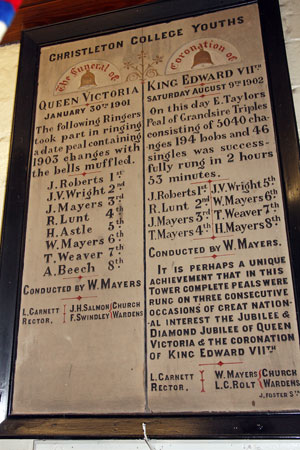 CHRISTLETON COLLEGE YOUTHS
The Funeral of
QUEEN VICTORIA
JANUARY 30TH 1901
The following Ringers
took part in ringing
a date peal containing
1903 changes with
the bells muffled.
J. Roberts 1st
J.V. Wright 2nd
J. Mayers 3rd
R. Lunt 4th
H. Astle 5th
W. Mayers 6th
T. Weaver 7th
A. Beech 8th
CONDUCTED BY W. MAYERS
L. GARNETT RECTOR.
J.H. SALMON F. SWINDLEY CHURCH WARDENS
Coronation of
KING EDWARD VIITH
SATURDAY AUGUST 9TH 1902
On this day E. Taylors
Peal of Grandsire Triples
consisting of 5040 cha-
nges 194 bobs and 46
singles was success-
fully rung in 2 hours
53 minutes.
J. Roberts 1st J.V. Wright 5th
R. Lunt 2nd W. Mayers 6th
J. Mayers 3rd T. Weaver 7th
T. Mayers 4th H. Mayers 8th
CONDUCTED BY W. MAYERS.
IT IS PERHAPS A UNIQUE
ACHIEVEMENT THAT IN THIS
TOWER COMPLETE PEALS WERE
RUNG ON THREE CONSECUTIVE
OCCASIONS OF GREAT NATION-
AL INTEREST THE JUBILEE &
DIAMOND JUBILEE OF QUEEN
VICTORIA & THE CORONATION
OF KING EDWARD VIITH
L. GARNETT RECTOR.
W. MAYERS L.C. ROLT CHURCH WARDENS
J. FOSTER